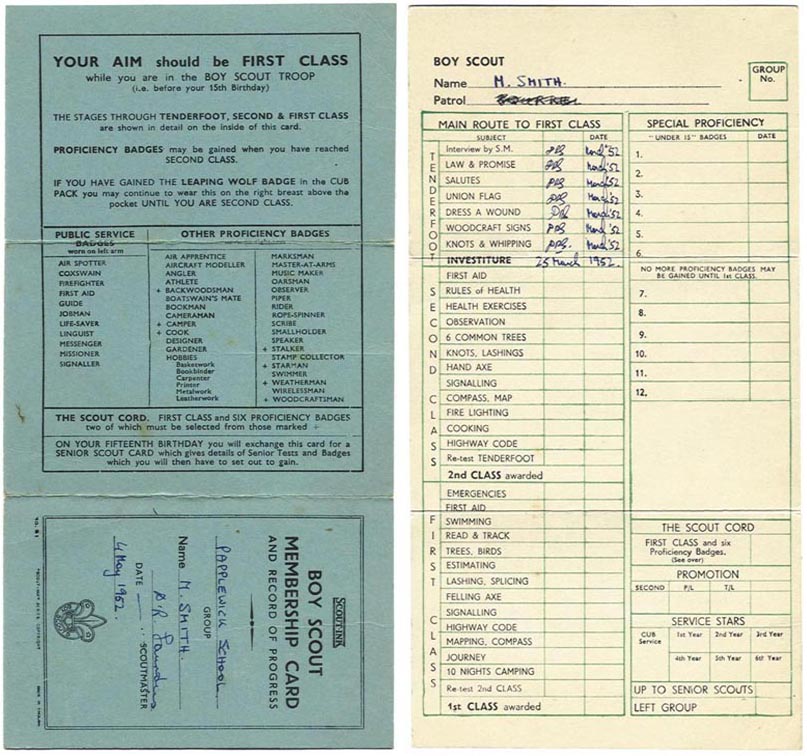 YOUR AIM should be FIRST CLASS
while you are in the BOY SCOUT TROOP
(i.e. before your 15th Birthday)
THE STAGES THROUGH TENDERFOOT, SECOND & FIRST CLASS
are shown in detail on the inside of this card.
PROFICIENCY BADGES may be gained when you have reached
SECOND CLASS.
IF YOU HAVE GAINED THE LEAPING WOLF BADGE in the CUB
PACK you may continue to wear this on the right breast above the
pocket UNTIL YOU ARE SECOND CLASS.
PUBLIC SERVICE
BADGES
worn on left arm
AIR SPOTTER
COXSWAIN
FIREFIGHTER
FIRST AID
GUIDE
JOBMAN
LIFE-SAVER
LINGUIST
MESSENGER
MISSIONER
SIGNALLER
OTHER PROFICIENCY BADGES
AIR APPRENTICE
AIRCRAFT MODELLER
ANGLER
ATHLETE
+ BACKWOODSMAN
BOATSWAIN'S MATE
BOOKMAN
CAMERAMAN
+ CAMPER
+ COOK
DESIGNER
GARDENER
HOBBIES
Basketwork
Bookbinder
Carpenter
Printer
Metalwork
Leatherwork
MARKSMAN
MASTER-AT-ARMS
MUSIC MAKER
OARSMAN
OBSERVER
PIPER
RIDER
ROPE-SPINNER
SCRIBE
SMALLHOLDER
SPEAKER
+ STALKER
STAMP COLLECTOR
+ STARMAN
SWIMMER
+ WEATHERMAN
WIRELESSMAN
+ WOODCRAFTSMAN
THE SCOUT CORD. FIRST CLASS and SIX PROFICIENCY BADGES
two of which must be selected from those marked +
ON YOUR FIFTEENTH BIRTHDAY you will exchange this card for a
SENIOR SCOUT CARD which gives details of Senior Tests and Badges
which you will then have to set out to gain.
SCOUT-INK
BOY SCOUT
MEMBERSHIP CARD
AND RECORD OF PROGRESS
PAPPLEWICK SCHOOL
GROUP
Name M. SMITH.
SCOUTMASTER
DATE
4 May 1952.
BOY SCOUT
Name M. SMITH.
Patrol
GROUP
No.
MAIN ROUTE TO FIRST CLASS
SUBJECT DATE
TENDERFOOT
Interview by S.M. March '52
LAW & PROMISE March '52
SALUTES March '52
UNION FLAG March '52
DRESS A WOUND March '52
WOODCRAFT SIGNS March '52
KNOTS & WHIPPING March '52
INVESTITURE 25 March 1952.
SECOND CLASS
FIRST AID
RULES of HEALTH
HEALTH EXERCISES
OBSERVATION
6 COMMON TREES
KNOTS, LASHINGS
HAND AXE
SIGNALLING
COMPASS, MAP
FIRE LIGHTING
COOKING
HIGHWAY CODE
Re-test TENDERFOOT
2nd CLASS awarded
FIRST CLASS
EMERGENCIES
FIRST AID
SWIMMING
READ & TRACK
TREES, BIRDS
ESTIMATING
LASHING, SPLICING
FELLING AXE
SIGNALLING
HIGHWAY CODE
MAPPING, COMPASS
JOURNEY
10 NIGHTS CAMPING
Re-test 2nd CLASS
1st CLASS awarded
SPECIAL PROFICIENCY
"UNDER 15" BADGES DATE
1.
2.
3.
4.
5.
6.
NO MORE PROFICIENCY BADGES MAY
BE GAINED UNTIL 1st CLASS.
7.
8.
9.
10.
11.
12,
THE SCOUT CORD
FIRST CLASS and six
Proficiency Badges.
(See over)
PROMOTION
SECOND P/L T/L
SERVICE STARS
CUB
Service
1st Year 2nd Year 3rd Year
4th Year 5th Year 6th Year
UP TO SENIOR SCOUTS
LEFT GROUP